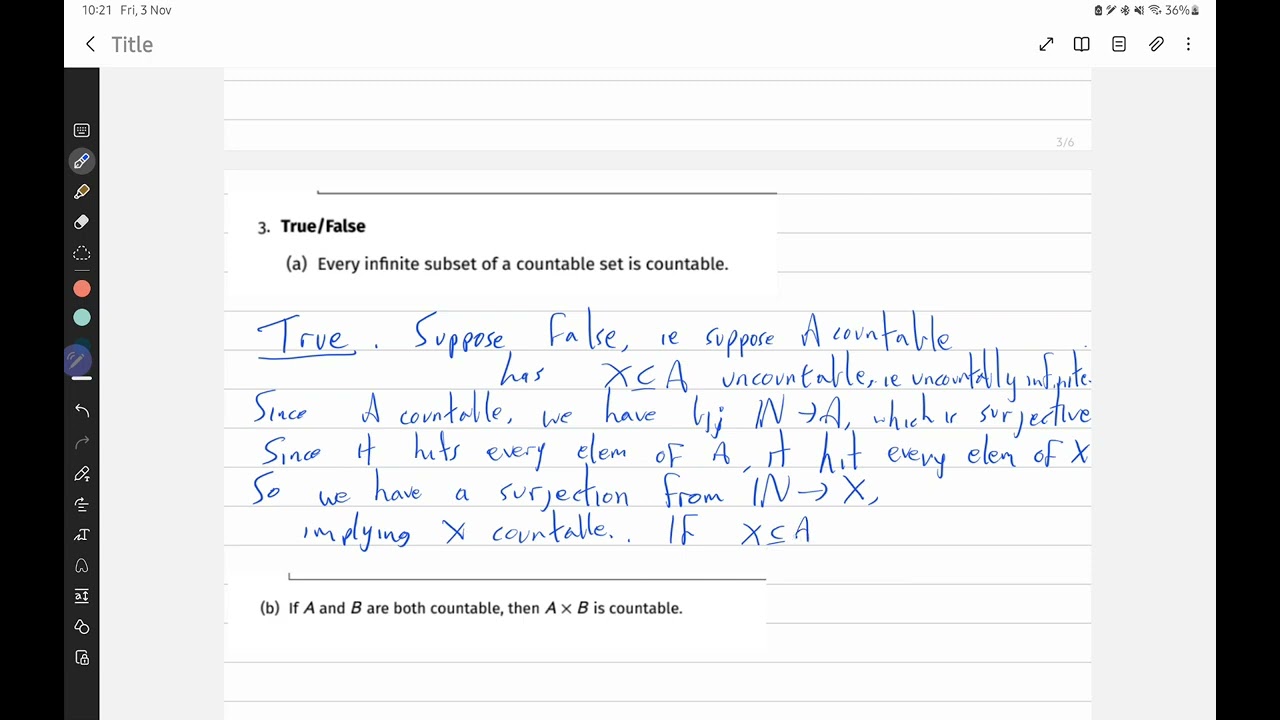 10:21 Fri, 3 Nov
36%
Title
3/6
3. True/False
(a) Every infinite subset of a countable set is countable.
True. Suppose False, ie suppose A countable
has X ⊆ A uncountable, ie uncountably infinite.
Since A countable, we have bij ℕ → A, which is surjective
Since it hits every elem of A, it hit every elem of X
So we have a surjection from ℕ → X,
implying X countable. If X ⊆ A
(b) If A and B are both countable, then A × B is countable.